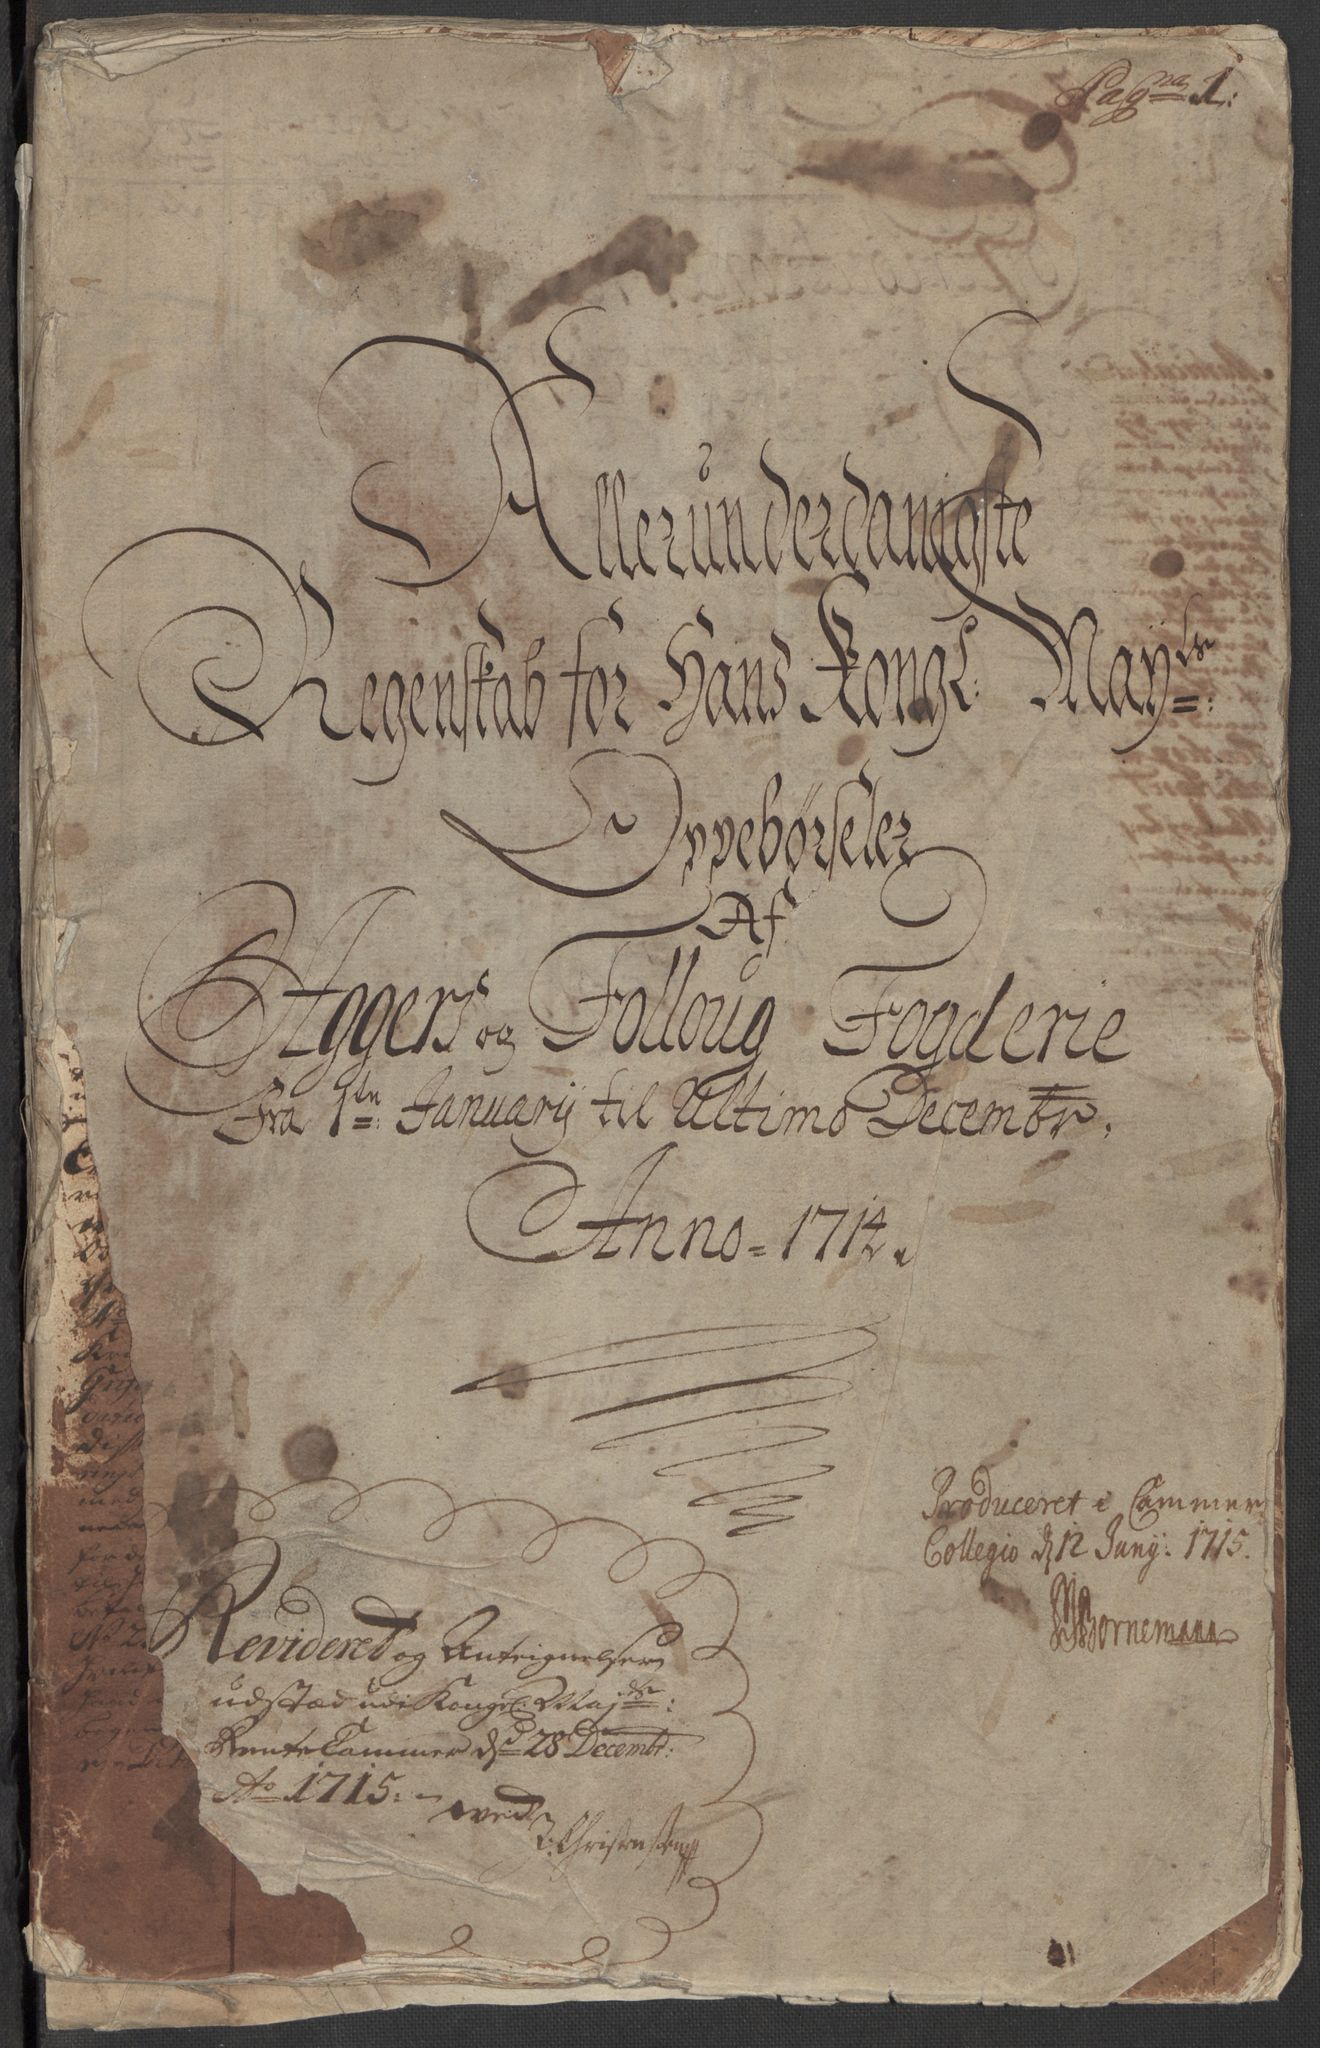 Pag:na 1:
Allerunderdanigste
Regenskab for Hans Kongl: Mayts:
Oppebørseler
Af
Aggers og Folloug Fogderie
Fra 1ste: Januarij til Ultimo Decembr.
Anno = 1714.
Produceret i Cammer
Collegio d 12 Junij: 1715.
Bornemann
Revideret og Anteignelser
udstæd udi Kongl: Majts:
Rente Cammer d 28 Decembr:
Ao 1715. -
ved